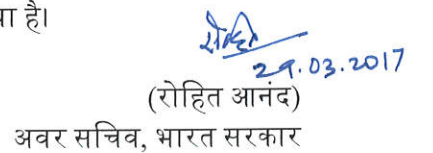 ा है।
रोहित
29.03.2017
(रोहित आनंद)
अवर सचिव, भारत सरकार